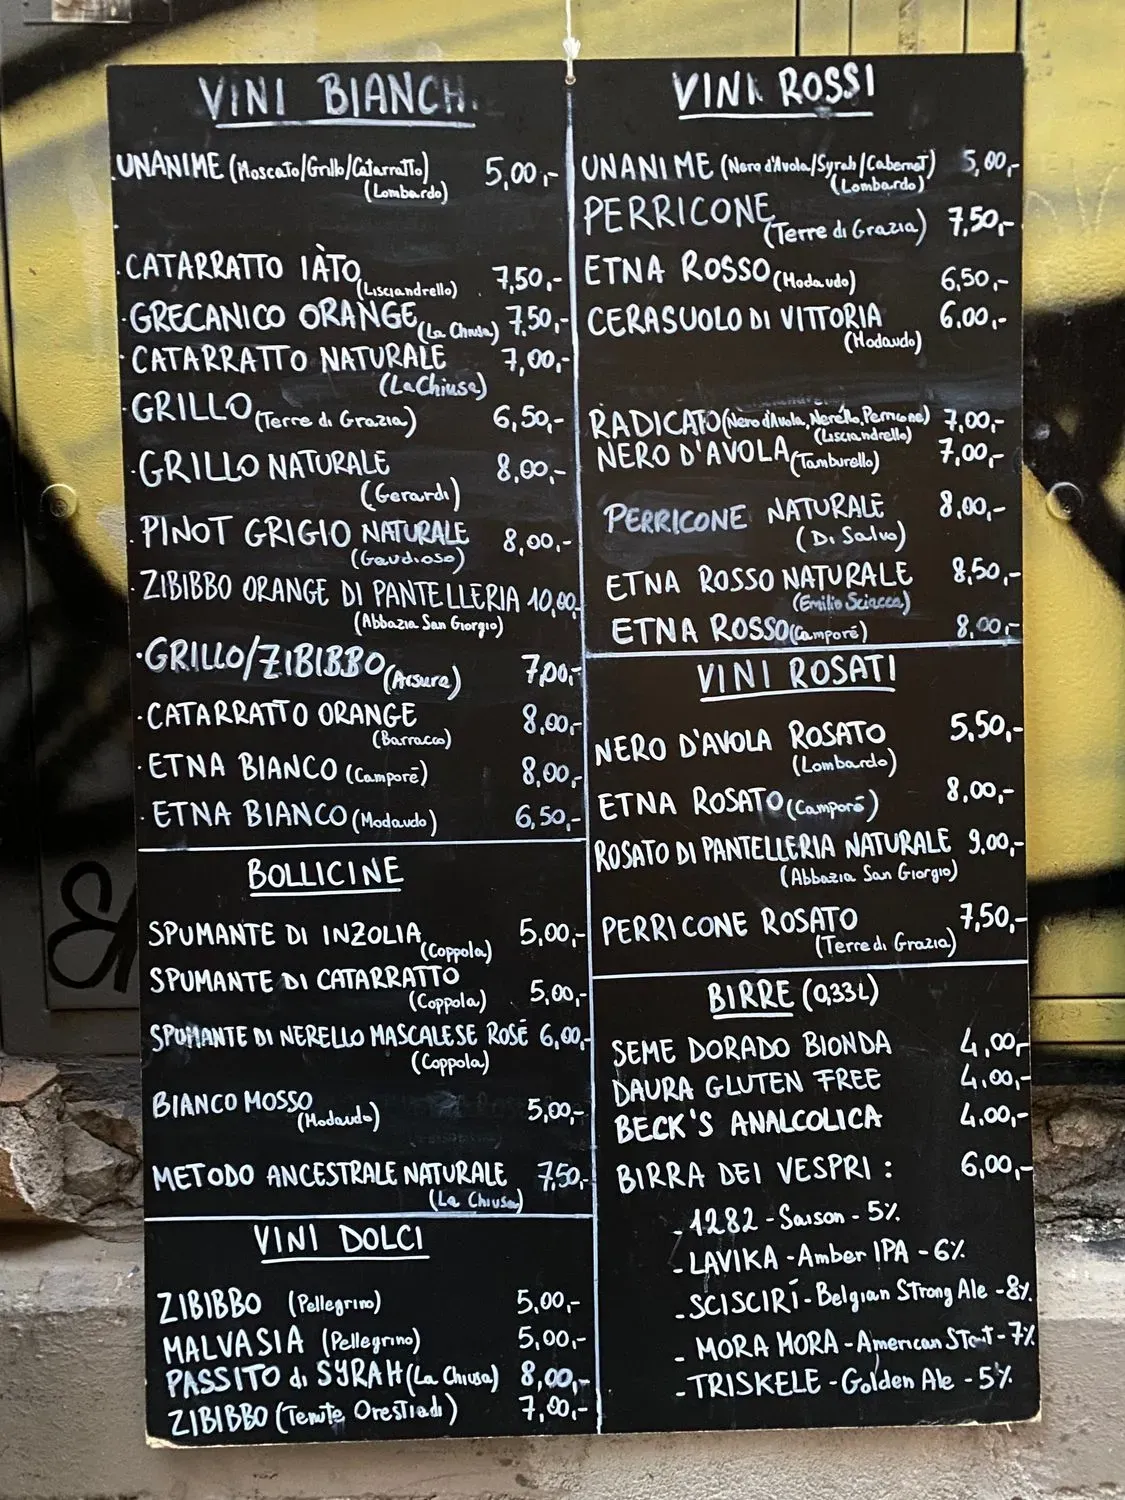 VINI BIANCHI
UNANIME (Moscato/Grillo/Catarratto) 5,00,-
(Lombardo)
CATARRATTO IÀTO (Lisciandrello) 7,50,-
GRECANICO ORANGE (La Chiusa) 7,50,-
CATARRATTO NATURALE 7,00,-
(La Chiusa)
GRILLO (Terre di Grazia) 6,50,-
GRILLO NATURALE 8,00,-
(Gerardi)
PINOT GRIGIO NATURALE 8,00,-
(Gaudioso)
ZIBIBBO ORANGE DI PANTELLERIA 10,00,-
(Abbazia San Giorgio)
GRILLO/ZIBIBBO (Arsura) 7,00,-
CATARRATTO ORANGE 8,00,-
(Barracco)
ETNA BIANCO (Camporè) 8,00,-
ETNA BIANCO (Modaudo) 6,50,-
BOLLICINE
SPUMANTE DI INZOLIA (Coppola) 5,00,-
SPUMANTE DI CATARRATTO 5,00,-
(Coppola)
SPUMANTE DI NERELLO MASCALESE ROSÉ 6,00,-
(Coppola)
BIANCO MOSSO (Modaudo) 5,00,-
METODO ANCESTRALE NATURALE 7,50,-
(La Chiusa)
VINI DOLCI
ZIBIBBO (Pellegrino) 5,00,-
MALVASIA (Pellegrino) 5,00,-
PASSITO di SYRAH (La Chiusa) 8,00,-
ZIBIBBO (Tenute Orestiadi) 7,00,-
VINI ROSSI
UNANIME (Nero d'Avola/Syrah/Cabernet) 5,00,-
(Lombardo)
PERRICONE (Terre di Grazia) 7,50,-
ETNA ROSSO (Modaudo) 6,50,-
CERASUOLO DI VITTORIA 6,00,-
(Modaudo)
RADICATO (Nero d'Avola, Nerello, Perricone) 7,00,-
(Lisciandrello)
NERO D'AVOLA (Tamburello) 7,00,-
PERRICONE NATURALE 8,00,-
(Di Salvo)
ETNA ROSSO NATURALE 8,50,-
(Emilio Sciacca)
ETNA ROSSO (Camporé) 8,00,-
VINI ROSATI
NERO D'AVOLA ROSATO 5,50,-
(Lombardo)
ETNA ROSATO (Camporé) 8,00,-
ROSATO DI PANTELLERIA NATURALE 9,00,-
(Abbazia San Giorgio)
PERRICONE ROSATO 7,50,-
(Terre di Grazia)
BIRRE (0,33L)
SEME DORADO BIONDA 4,00,-
DAURA GLUTEN FREE 4,00,-
BECK'S ANALCOLICA 4,00,-
BIRRA DEI VESPRI : 6,00,-
- 1282 - Saison - 5%
- LAVIKA - Amber IPA - 6%
- SCISCIRÍ - Belgian Strong Ale - 8%
- MORA MORA - American Stout - 7%
- TRISKELE - Golden Ale - 5%